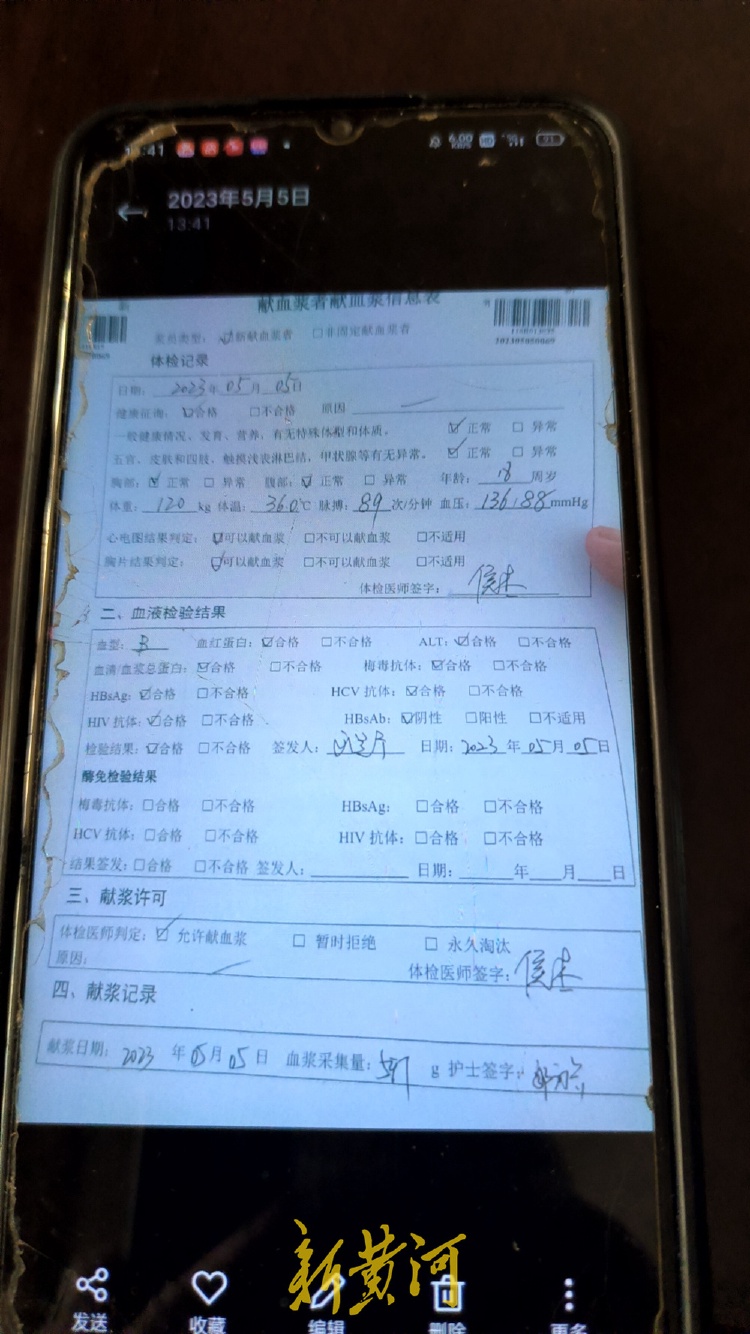 :41
2023年5月5日
13:41
献血浆者献血浆信息表
浆员类型： ☑新献血浆者 ☐非固定献血浆者
体检记录
日期： 2023年 05月 05日
健康征询： ☑合格 ☐不合格 原因
一般健康情况、发育、营养，有无特殊体型和体质。 ☑正常 ☐ 异常
五官、皮肤和四肢，触摸浅表淋巴结，甲状腺等有无异常。 ☑正常 ☐ 异常
胸部：☑正常 ☐ 异常 腹部：☑正常 ☐ 异常 年龄： 18 周岁
体重： 120 kg 体温： 36.0℃ 脉搏：89 次/分钟 血压：136/88mmHg
心电图结果判定：☑可以献血浆 ☐不可以献血浆 ☐不适用
胸片结果判定： ☑可以献血浆 ☐不可以献血浆 ☐不适用
体检医师签字：
二、血液检验结果
血型： B 血红蛋白：☑合格 ☐不合格 ALT：☑合格 ☐不合格
血清/血浆总蛋白：☑合格 ☐不合格 梅毒抗体：☑合格 ☐不合格
HBsAg：☑合格 ☐不合格 HCV 抗体：☑合格 ☐不合格
HIV 抗体：☑合格 ☐不合格 HBsAb：☑阴性 ☐阳性 ☐不适用
检验结果：☑合格 ☐不合格 签发人： 日期：2023 年 05月 05日
酶免检验结果
梅毒抗体：☐合格 ☐不合格 HBsAg： ☐合格 ☐不合格
HCV 抗体：☐合格 ☐不合格 HIV 抗体：☐合格 ☐不合格
结果签发：☐合格 ☐不合格 签发人： 日期： 年 月 日
三、献浆许可
体检医师判定：☑ 允许献血浆 ☐ 暂时拒绝 ☐ 永久淘汰
原因： 体检医师签字：
四、献浆记录
献浆日期： 2023 年05月05日 血浆采集量： g 护士签字：
新黄河
发送 收藏 编辑 删除 更多